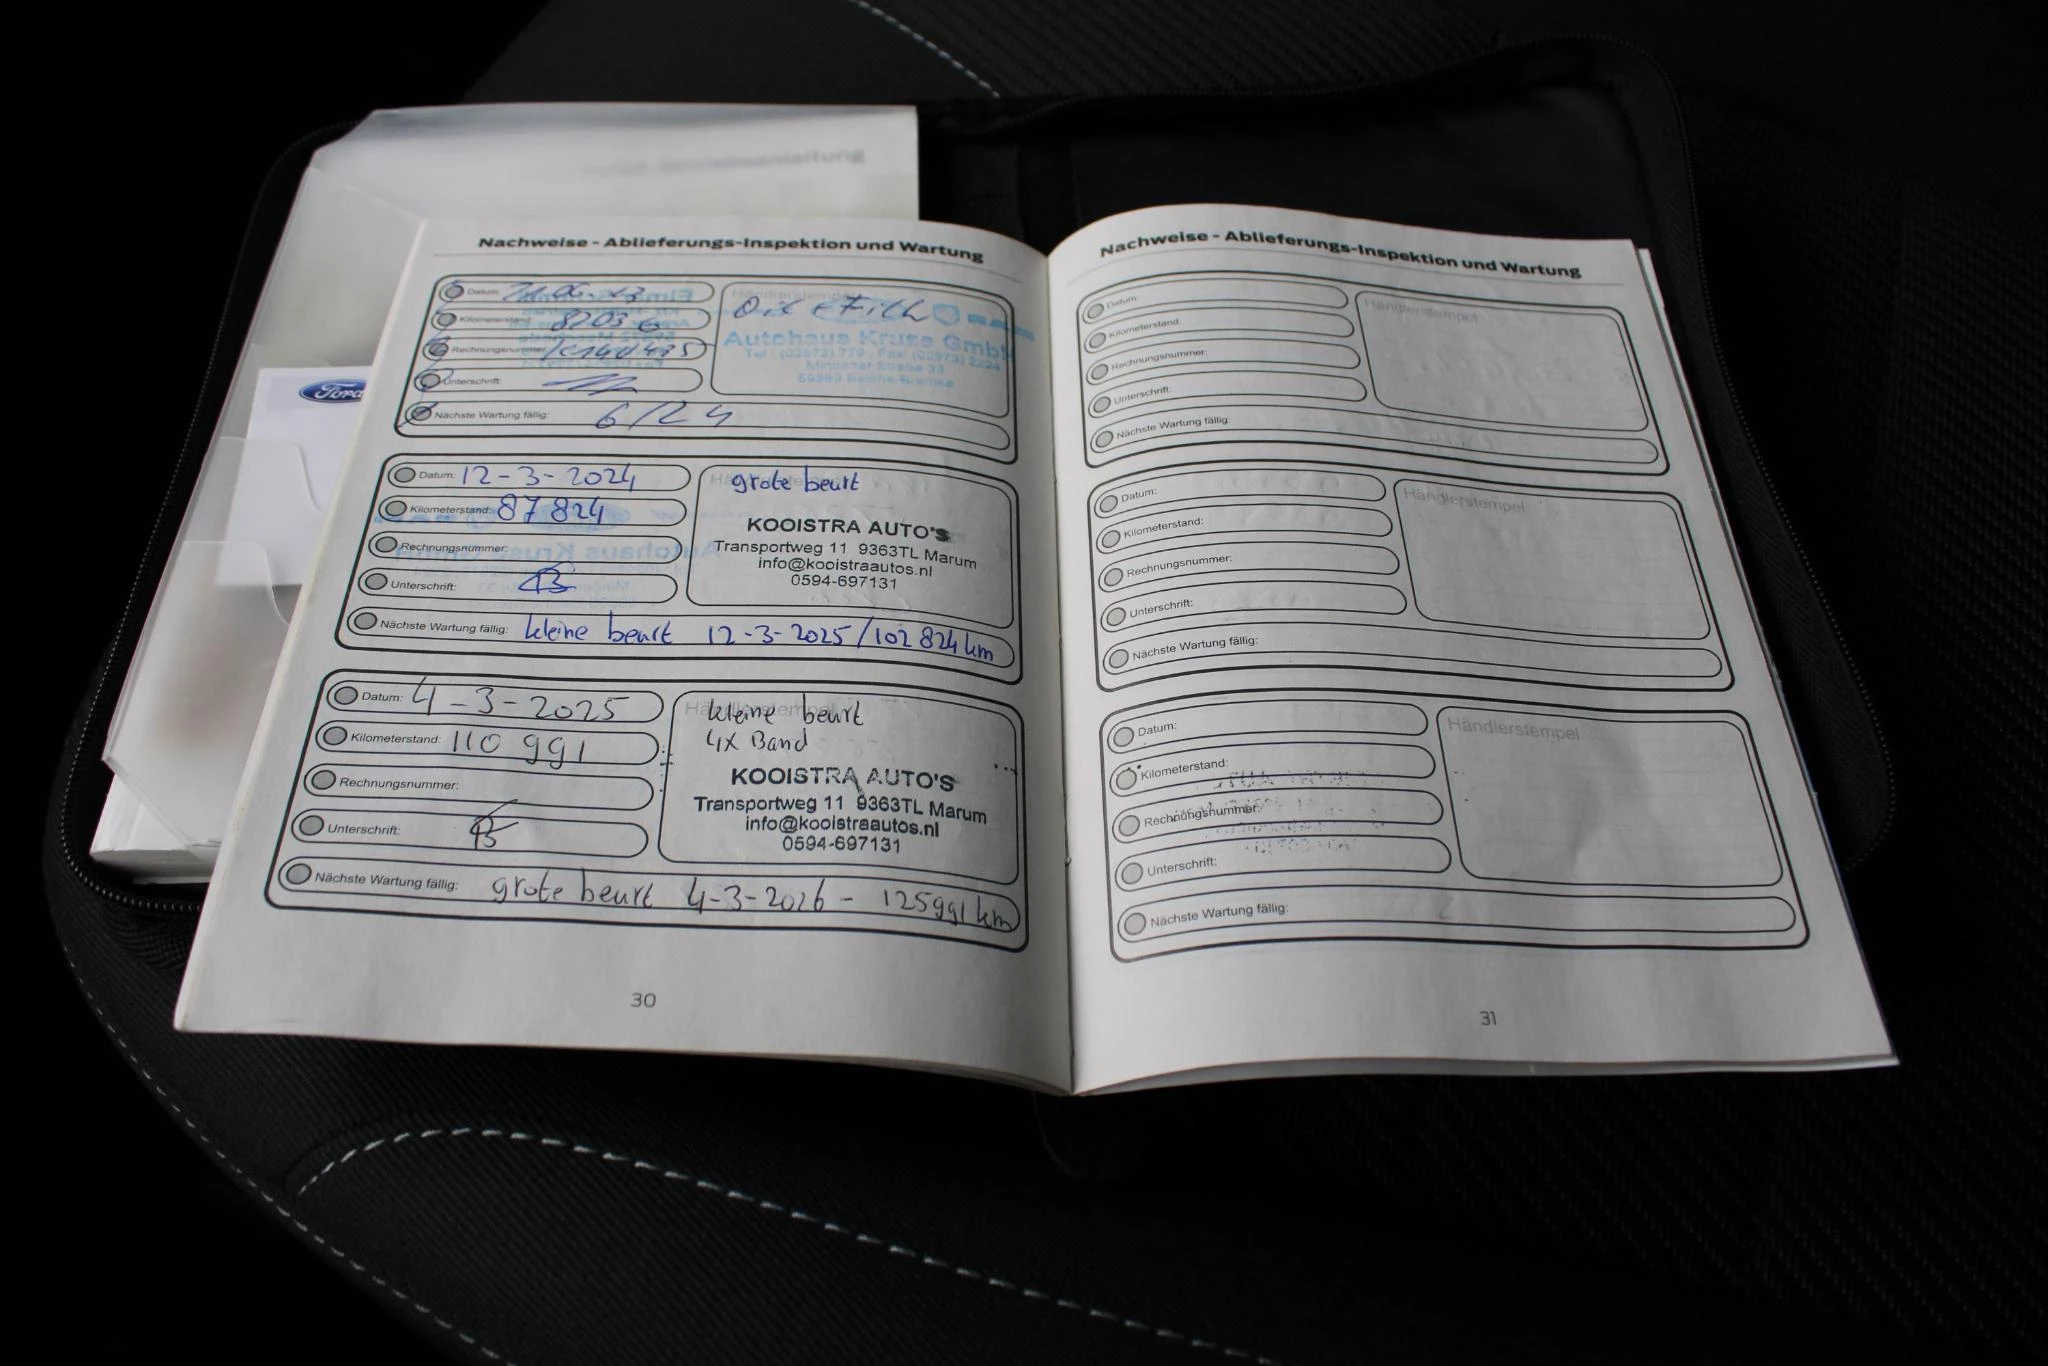 Ford
Nachweise - Ablieferungs-Inspektion und Wartung
Datum:
Kilometerstand:
Rechnungsnummer:
Unterschrift:
Nächste Wartung fällig: 6/24
Händlerstempel
Autohaus Kruse GmbH
Tel.: (02973) 779 . Fax: (02973) 2224
Mindener Straße 33
Datum: 12-3-2024
Kilometerstand: 87 824
Rechnungsnummer:
Unterschrift:
Nächste Wartung fällig: kleine beurt 12-3-2025/102 824 km
grote beurt
KOOISTRA AUTO'S
Transportweg 11 9363TL Marum
info@kooistraautos.nl
0594-697131
Datum: 4-3-2025
Kilometerstand: 110 991
Rechnungsnummer:
Unterschrift:
Nächste Wartung fällig: grote beurt 4-3-2026 - 125991 km
Händlerstempel
kleine beurt
4x Band
KOOISTRA AUTO'S
Transportweg 11 9363TL Marum
info@kooistraautos.nl
0594-697131
30
Nachweise - Ablieferungs-Inspektion und Wartung
Datum:
Kilometerstand:
Rechnungsnummer:
Unterschrift:
Nächste Wartung fällig:
Händlerstempel
Datum:
Kilometerstand:
Rechnungsnummer:
Unterschrift:
Nächste Wartung fällig:
Händlerstempel
Datum:
Kilometerstand:
Rechnungsnummer:
Unterschrift:
Nächste Wartung fällig:
Händlerstempel
31